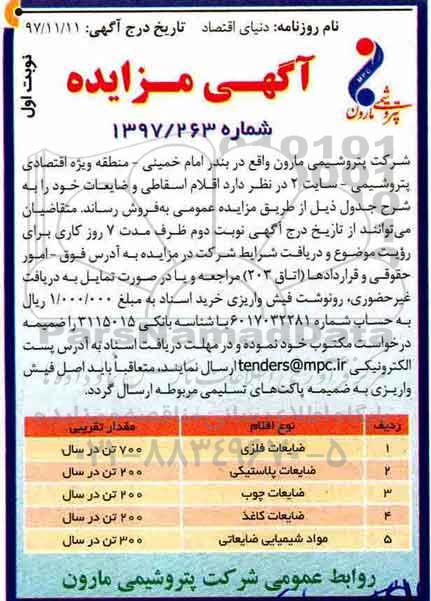 نام روزنامه: دنیای اقتصاد تاریخ درج آگهی: ۹۷/۱۱/۱۱
MPC
پتروشیمی مارون
آگهی مزایده
نوبت اول
شماره ۱۳۹۷/۲۶۳
شرکت پتروشیمی مارون واقع در بندر امام خمینی - منطقه ویژه اقتصادی
پتروشیمی - سایت ۲ در نظر دارد اقلام اسقاطی و ضایعات خود را به
شرح جدول ذیل از طریق مزایده عمومی به‌فروش رساند. متقاضیان
می‌توانند از تاریخ درج آگهی نوبت دوم ظرف مدت ۷ روز کاری برای
رؤیت موضوع و دریافت شرایط شرکت در مزایده به آدرس فوق - امور
حقوقی و قراردادها (اتاق ۲۰۳) مراجعه و یا در صورت تمایل به دریافت
غیرحضوری، رونوشت فیش واریزی خرید اسناد به مبلغ ۱/۰۰۰/۰۰۰ ریال
به حساب شماره ۶۰۱۷۰۳۲۲۸۱ با شناسه بانکی ۳۱۱۵۰۱۵ را ضمیمه
درخواست مکتوب خود نموده و در مهلت دریافت اسناد به آدرس پست
الکترونیکی tenders@mpc.ir ارسال نمایند، متعاقباً باید اصل فیش
واریزی به ضمیمه پاکت‌های تسلیمی مربوطه ارسال گردد.
ردیف نوع اقلام مقدار تقریبی
۱ ضایعات فلزی ۷۰۰ تن در سال
۲ ضایعات پلاستیکی ۲۰۰ تن در سال
۳ ضایعات چوب ۲۰۰ تن در سال
۴ ضایعات کاغذ ۲۰۰ تن در سال
۵ مواد شیمیایی ضایعاتی ۳۰۰ تن در سال
روابط عمومی شرکت پتروشیمی مارون